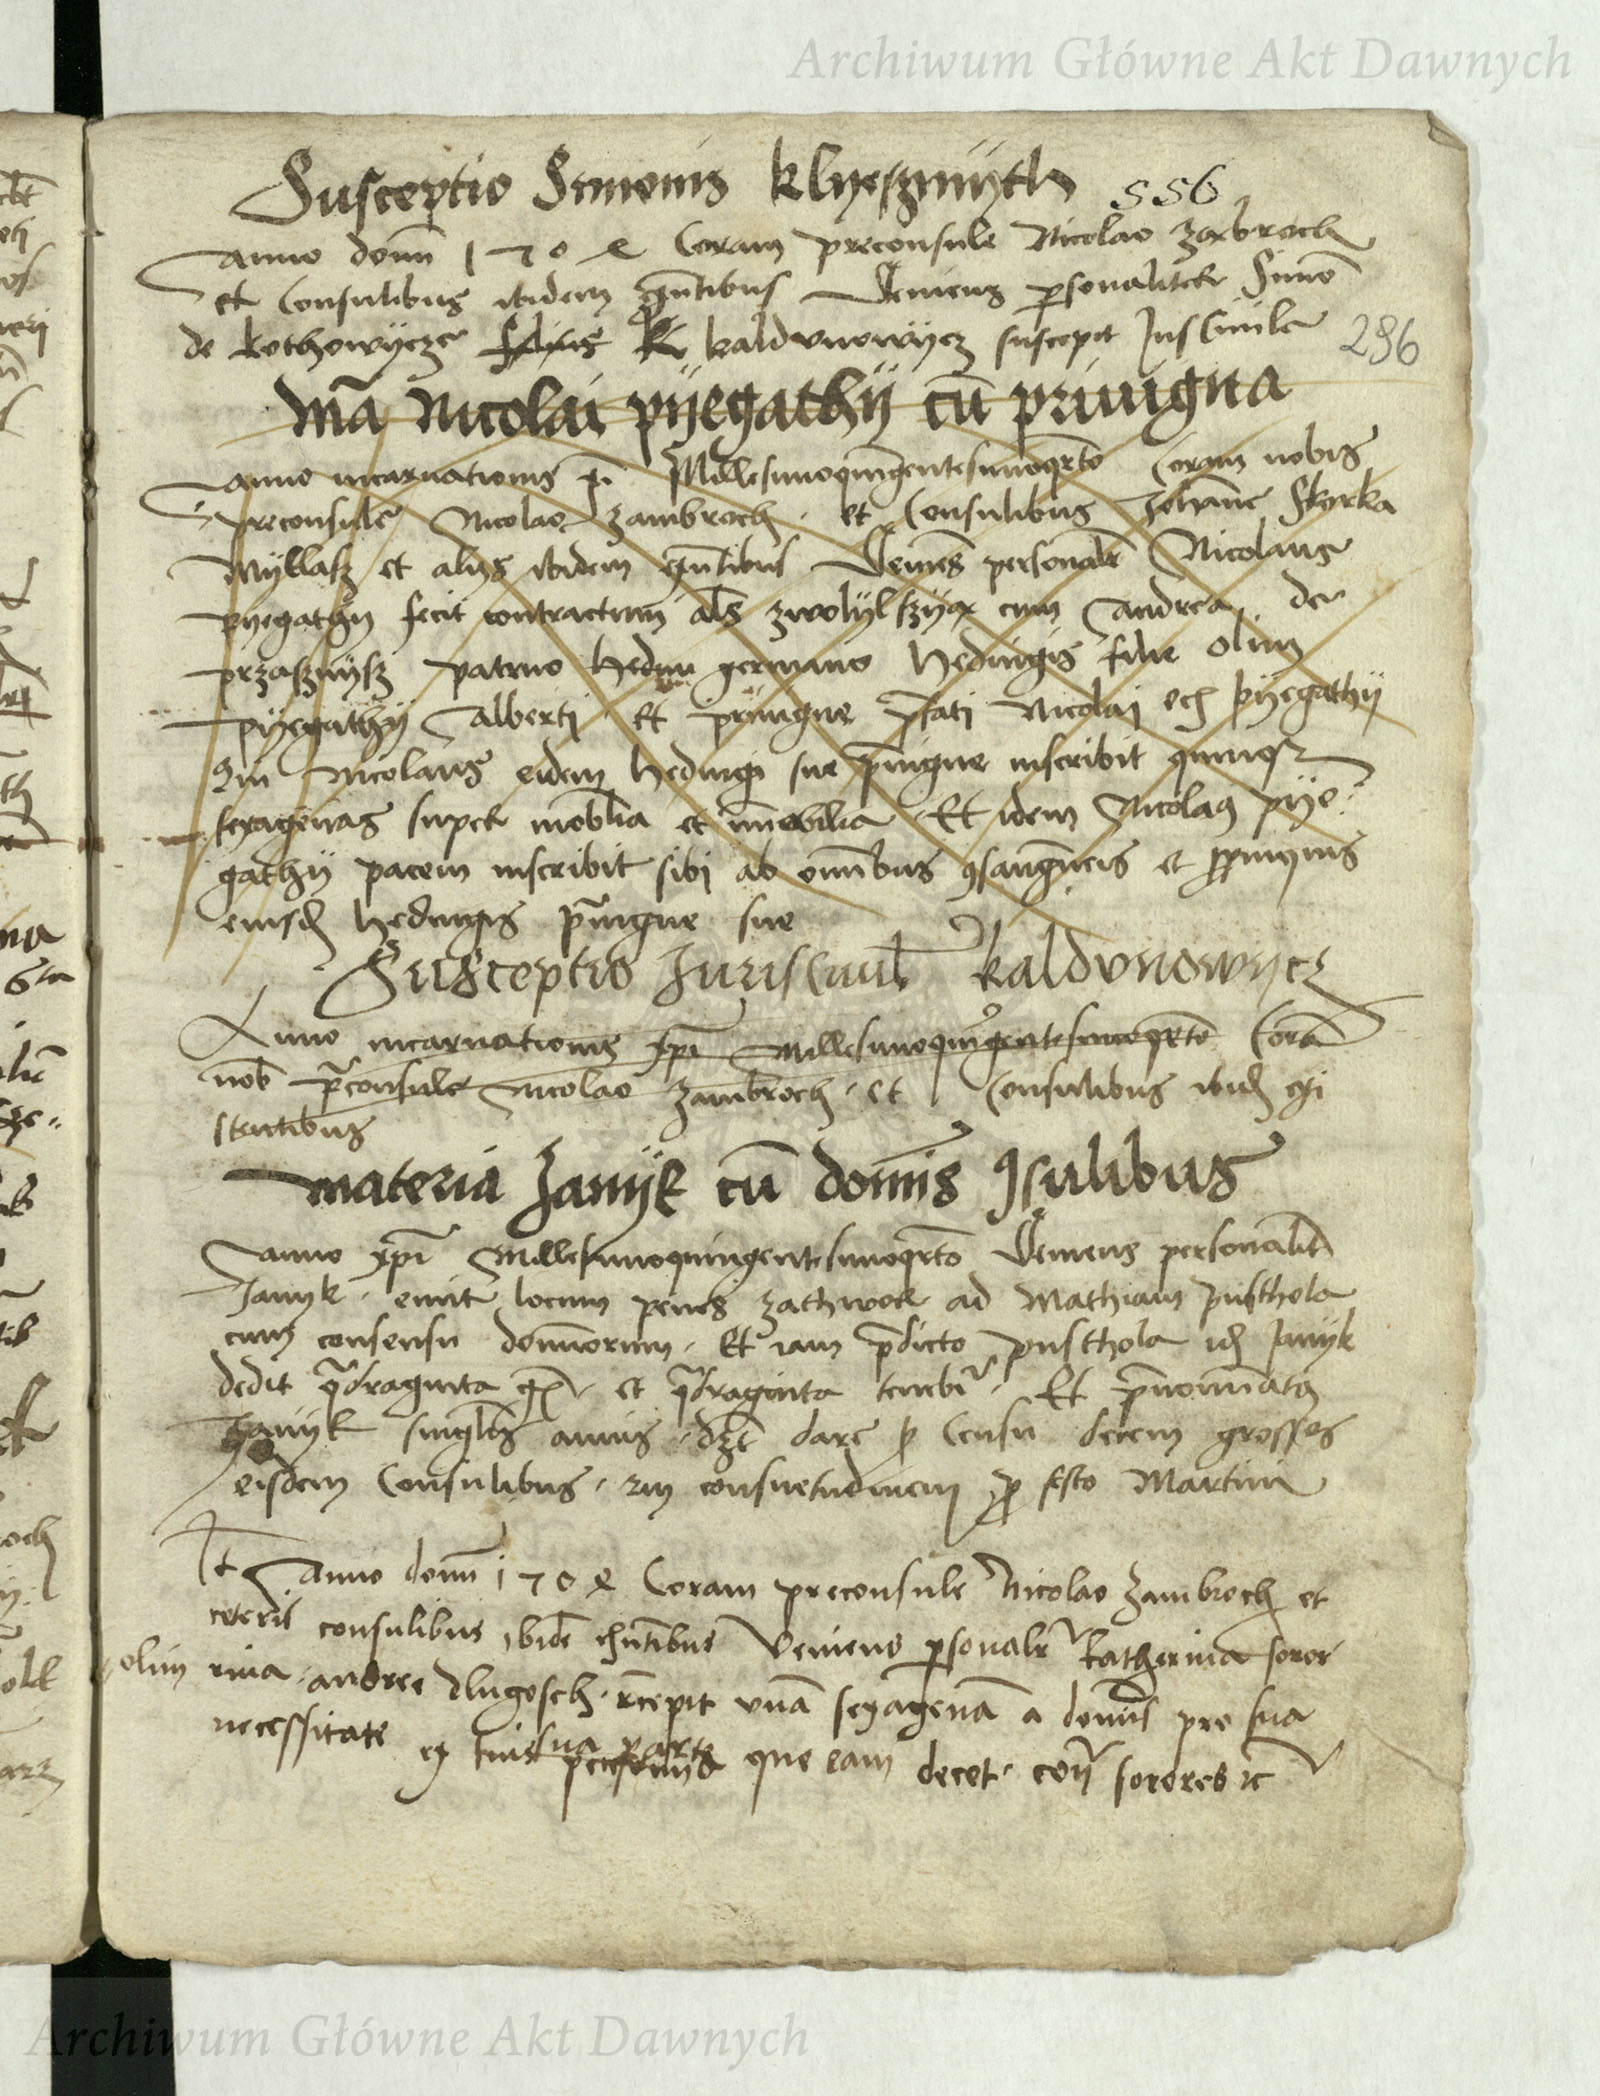 Archiwum Główne Akt Dawnych
Susceptio Simonis Klyeszmyth
556
Anno domī 1504 Coram preconsule Nicolao Zabroch
et Consulibus ibidem Veniens personaliter Simō
de kothowycze filius K kaldvnowycz suscepit Jus Ciuile
296
Mā Nicolai pyegathy cū priuigna
Anno incarnationis Millesimoquingentesimoqrto Coram nobis
preconsule Nicolao Zambroch et Consulibus Johāne Skyrka
Myllasz et alys ibidem Veniēs personalr Nicolaus
pyegathy fecit contractum als zwolyl szyą cum Andrea de
przasznysz patruo germano Hedwigis filie olim
pyegathy Alberti et priuigne pfati Nicolai pyegathy
Nicolaus eidem Hedwigi sue priuigne inscribit quinqꝫ
sexagenas super mobilia et īmobilia Et idem Nicolaꝰ pye
gathy pacem inscribit sibi ab omībus ꝯsangwneis et ꝓpinquis
eiusdē Hedwigis priuigne sue
Susceptio Juris Ciuil kaldvnowycz
Anno incarnationis xpi Millesimoquingentesimoqrto Corā
nob preconsule Nicolao Zambroch et Consulibus ibidē exi
stentibus
Materia Janyk cū domīs ꝯsulibus
Anno xpi Millesimoquingentesimoqrto Veniens personalit
Janyk emit locum penes ad Mathiam pusthola
cum consensu dominorum Et iam pdicto pusthola idē Janyk
dedit qdraginta et qdraginta tenebr Et pnominatꝰ
Janyk singlis annis dare ꝓ Censu decem grossos
eisdem Consulibus consuetudinem ꝓ festo Martini
It Anno domī 1504 Coram preconsule Nicolao Zambroch et
ceteris consulibus ibidē Veniens psonalr katherina soror
olim Andree dlugosch recepit vnā sexagenā a domīs pro sua
necessitate sua parte que eam decet sorores
Archiwum Główne Akt Dawnych